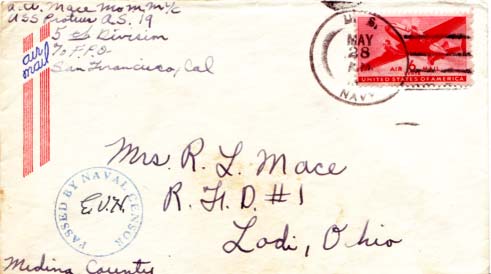 A.W. Mace MoMM 1/c
USS Proteus A.S. 19
5 Division
% F.P.O.
San Francisco, Cal
air
mail
U.S.
MAY
28
P.M.
NAVY
AIR 6¢ MAIL
UNITED STATES OF AMERICA
Mrs. R. L. Mace
R. F. D. #1
Lodi, Ohio
PASSED BY NAVAL CENSOR
E.V.H.
Medina County